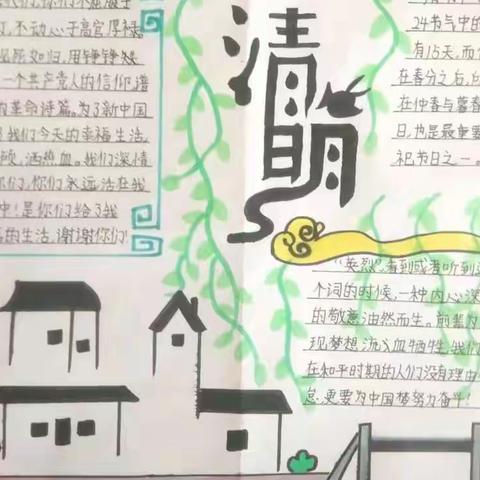 不动人心于高官厚禄
见死如归，用铮铮铁
一个共产党人的信仰谱
的革命诗篇。为了新中国
我们今天的幸福生活，
颅，洒热血。我们深情
你们，你们永远活在我
中！是你们给了我
的生活，谢谢你们
清明
24节气中的
有15天，而
在春分之后，
在仲春与暮春
日，也是最重要
祀节日之一。
“英烈”，看到或者听到这
个词的时候，一种内心深
的敬意油然而生。前辈为
现梦想，流血牺牲，我们
在和平时期的人们没有理由
怠，更要为中国梦努力奋斗！